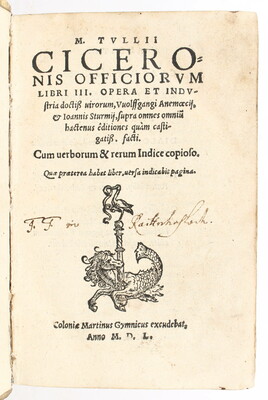 M. TVLLII
CICERO-
NIS OFFICIORVM
LIBRI III. OPERA ET INDV-
stria doctiß. uirorum, Vuolffgangi Anemœcij,
& Ioannis Sturmij, supra omnes omniū
hactenus ęditiones quàm casti-
gatiß. facti.
Cum uerborum & rerum Indice copioso.
Quæ præterea habet liber, uersa indicabit pagina.
F. F.
Coloniæ Martinus Gymnicus excudebat,
Anno M. D. L.